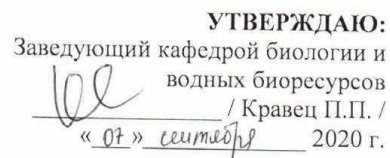 УТВЕРЖДАЮ:
Заведующий кафедрой биологии и
водных биоресурсов
/ Кравец П.П. /
«07» сентября 2020 г.